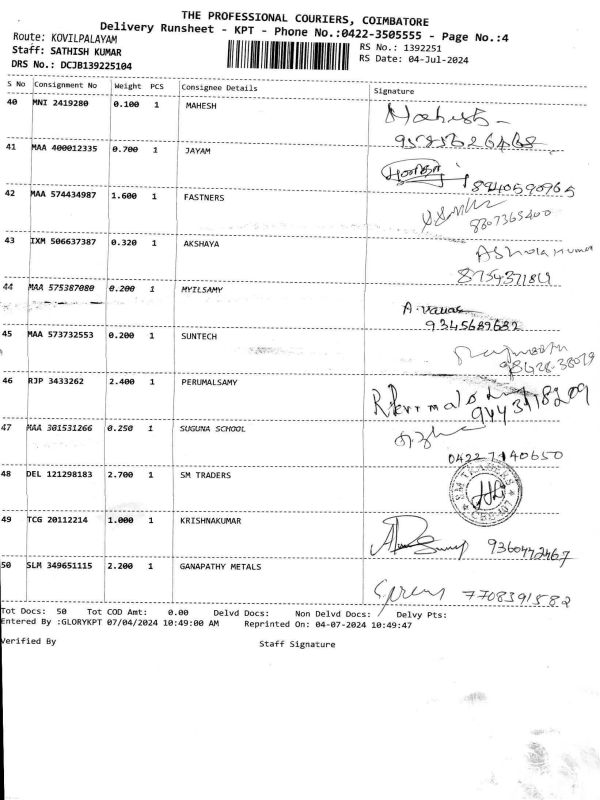 THE PROFESSIONAL COURIERS, COIMBATORE
Delivery Runsheet - KPT - Phone No.:0422-3505555 - Page No.:4
Route: KOVILPALAYAM
RS No.: 1392251
Staff: SATHISH KUMAR
RS Date: 04-Jul-2024
DRS No.: DCJB139225104
S No Consignment No Weight PCS Consignee Details Signature
40 MNI 2419280 0.100 1 MAHESH
41 MAA 400012335 0.700 1 JAYAM
8940590965
42 MAA 574434987 1.600 1 FASTNERS
8807365400
43 IXM 506637387 0.320 1 AKSHAYA
44 MAA 575387080 0.200 1 MYILSAMY
45 MAA 573732553 0.200 1 SUNTECH
46 RJP 3433262 2.400 1 PERUMALSAMY
47 MAA 301531266 0.250 1 SUGUNA SCHOOL
0422 7140650
48 DEL 121298183 2.700 1 SM TRADERS
SM TRADERS
49 TCG 20112214 1.000 1 KRISHNAKUMAR
9360472467
50 SLM 349651115 2.200 1 GANAPATHY METALS
7708391582
Tot Docs: 50 Tot COD Amt: 0.00 Delvd Docs: Non Delvd Docs: Delvy Pts:
Entered By :GLORYKPT 07/04/2024 10:49:00 AM Reprinted On: 04-07-2024 10:49:47
Verified By
Staff Signature